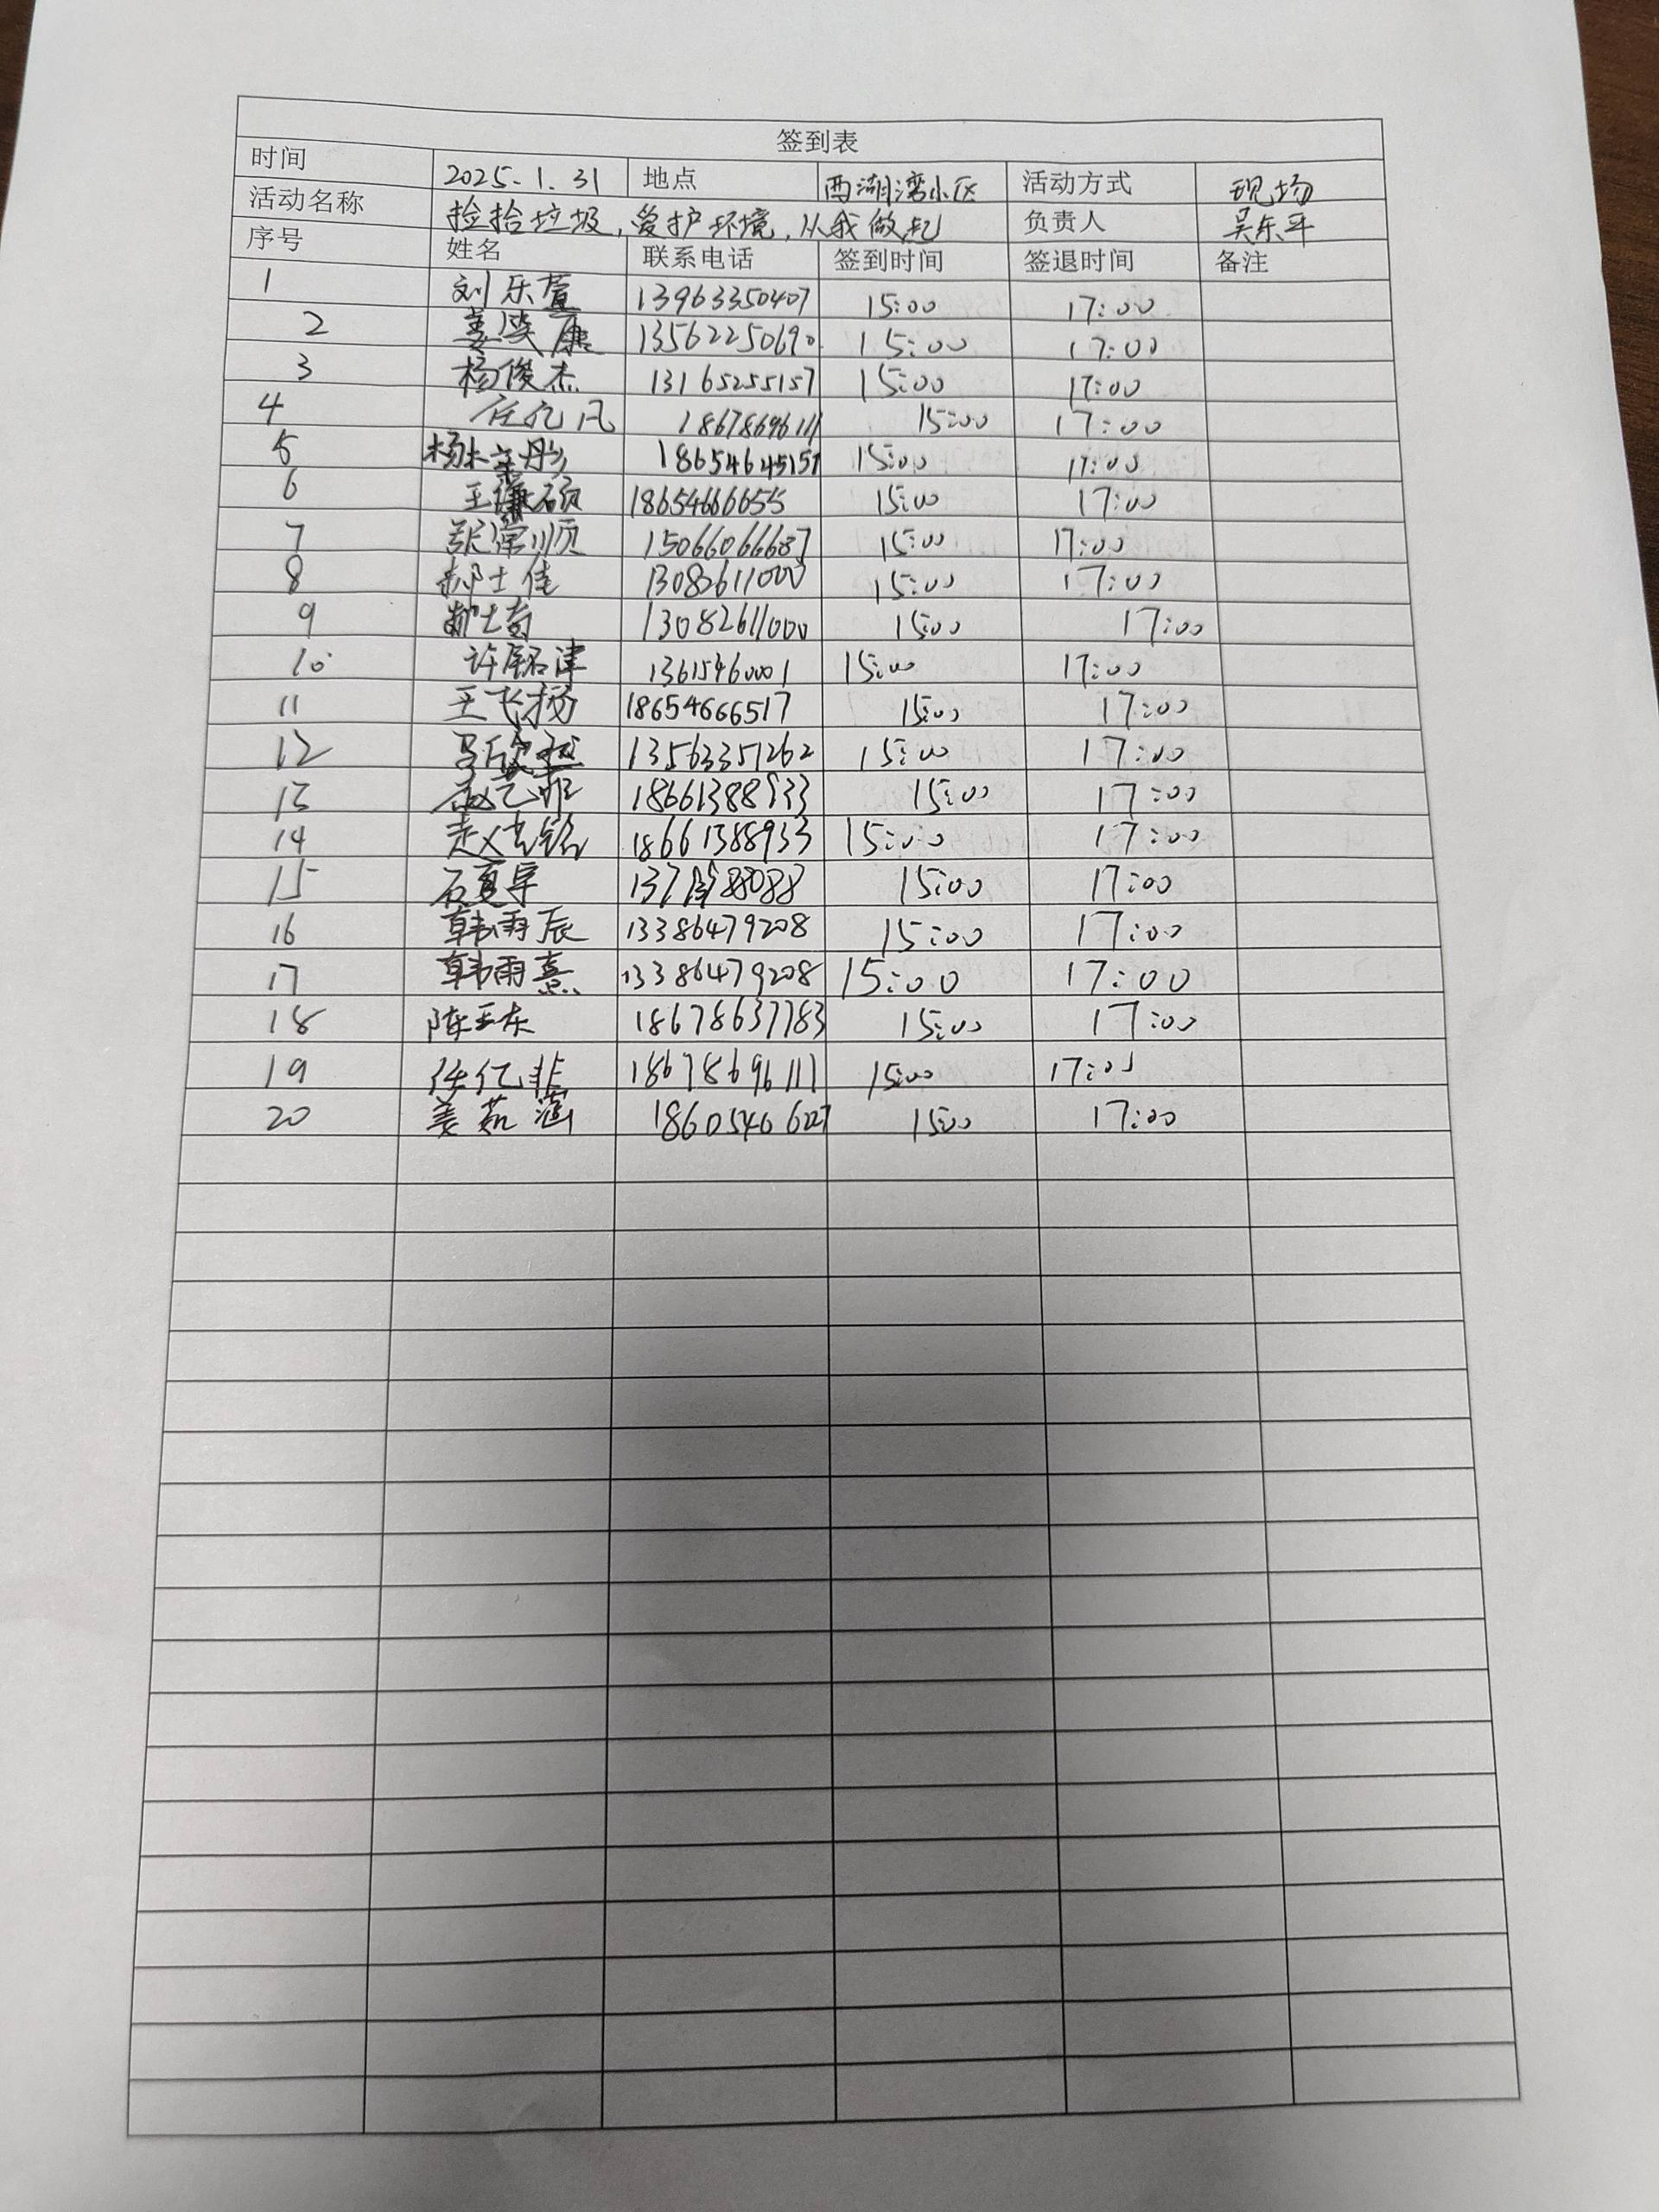 签到表
时间 2025.1.31 地点 西湖湾小区 活动方式 现场
活动名称 捡拾垃圾,爱护环境,从我做起 负责人 吴东平
序号 姓名 联系电话 签到时间 签退时间 备注
1 刘乐萱 13963350407 15:00 17:00
2 姜 康 13562250690 15:00 17:00
3 杨俊杰 13165255157 15:00 17:00
4 任亿凡 18678696111 15:00 17:00
5 杨 彤 18654645157 15:00 17:00
6 王 硕 18654666655 15:00 17:00
7 张 顺 15066066687 15:00 17:00
8 郝士佳 13082611000 15:00 17:00
9 郝士奇 13082611000 15:00 17:00
10 许铭津 13615460001 15:00 17:00
11 王飞扬 18654666517 15:00 17:00
12 马欣 13563351262 15:00 17:00
13 赵艺菲 18661388933 15:00 17:00
14 赵 铭 18661388933 15:00 17:00
15 石夏宇 15:00 17:00
16 韩雨辰 13386479208 15:00 17:00
17 韩雨熹 13386479208 15:00 17:00
18 陈玉东 18678637783 15:00 17:00
19 任亿非 18678696111 15:00 17:00
20 姜茹涵 15:00 17:00